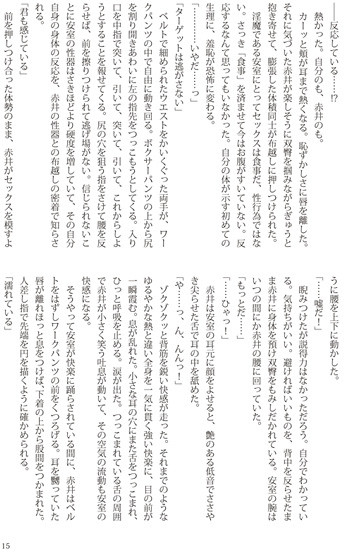 ――反応している……!?
熱かった。自分のも、赤井のも。
カーッと頬が耳まで熱くなる。恥ずかしさに唇を離した。
それに気づいた赤井が楽しそうに双臀を掴みながらぎゅうと
抱き寄せて、膨張した体積同士が布越しに押しつけられた。
淫魔である安室にとってセックスは食事だ、性行為ではな
い。さっき「食事」を済ませて今はお腹がすいていない。反
応するなんて思ってもいなかった。自分の体が示す初めての
生理に、羞恥が恐怖に変わる。
「…………いやだ……っ」
「ターゲットは逃がさない」
ベルトで緩められたウエストをかいくぐった両手が、ワー
クパンツの中で自由に動き回る。ボクサーパンツの上から尻
を割り開きあわいに左の指先をつっこもうとしてくる。入り
口を中指で突いて、引いて、突いて、引いて、これからしよ
うとすることを報せてくる。尻の穴を狙う指をさけて腰を反
らせば、前を擦りつけられて逃げ場がない。信じられないこ
とに安室の性器はさきほどより硬度を増していて、その自分
自身の身体の反応を、赤井の性器との布越しの密着で知らさ
れる。
「君も感じている」
前を押しつけ合った体勢のまま、赤井がセックスを模すよ
うに腰を上下に動かした。
「……嘘だ！」
睨みつけたが説得力はなかっただろう。自分でわかってい
る。気持ちがいい。避ければいいものを、背中を反らせたま
ま赤井に身体を預け双臀をもみしだかれている。安室の腕は
いつの間にか赤井の腰に回っていた。
「もっとだ……」
「……ひゃっ！」
赤井は安室の耳元に顔をよせると、艶のある低音でささや
き尖らせた舌で耳の中を舐めた。
「や……っ、ん、んんっ！」
ゾクゾクっと背筋を鋭い快感が走った。それまでのような
ゆるやかな熱と違い全身を一気に貫く強い快楽に、目の前が
一瞬霞む。息が乱れた。小さな耳の穴にまた舌をつっこまれ、
ひっと呼吸を止める。涙が出た。つっこまれている舌の周囲
で赤井が小さく笑う吐息が動いて、その空気の流動も安室の
快感になる。
そうやって安室が快楽に踊らされている間に、赤井はベル
トをはずしワークパンツの前をくつろげる。耳を嬲っていた
唇が離れほっと息をつけば、下着の上から股間をつかまれた。
人差し指で先端を円を描くように確かめられる。
「濡れている」
15